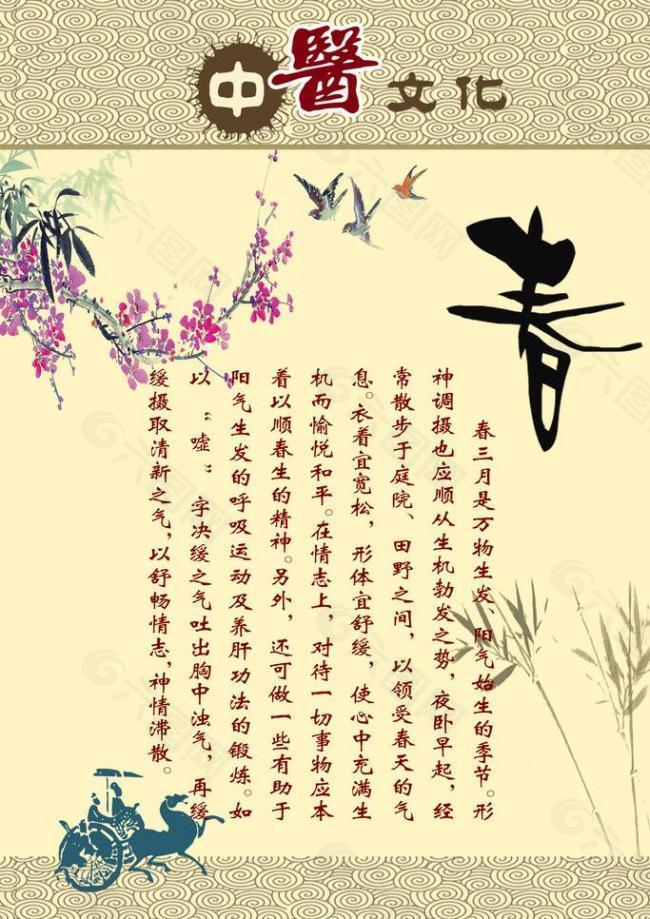 中醫文化
春
春三月是万物生发、阳气始生的季节。形
神调摄也应顺从生机勃发之势，夜卧早起，经
常散步于庭院、田野之间，以领受春天的气
息。衣着宜宽松，形体宜舒缓，使心中充满生
机而愉悦和平。在情志上，对待一切事物应本
着以顺春生的精神。另外，还可做一些有助于
阳气生发的呼吸运动及养肝功法的锻炼。如
以：嘘：字决缓之气吐出胸中浊气，再缓
缓摄取清新之气，以舒畅情志，神情滞散。
六图网